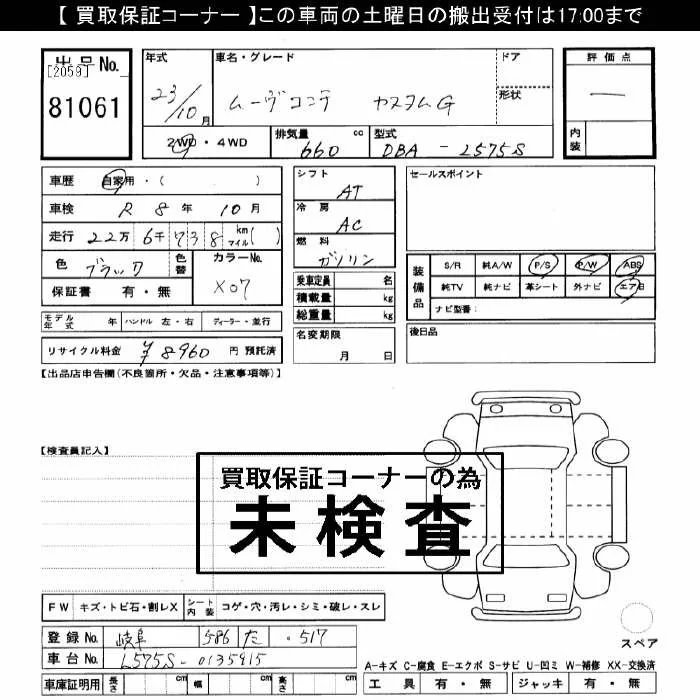 【 買取保証コーナー 】この車両の土曜日の搬出受付は17:00まで
出品No.
[2059]
81061
年式
23/10月
車名・グレード
ムーヴコンテ カスタムG
ドア
形状
評価点
―
内装
2WD・4WD
排気量 660 cc
型式 DBA - L575S
車歴 自家用・( )
車検 R 8年 10月
走行 22万6千738 km マイル( )
色 ブラック
色替
カラーNo. X07
保証書 有・無
モデル年式 年 ハンドル 左・右 ディーラー・並行
リサイクル料金 ¥8960 円 預託済
シフト AT
冷房 AC
燃料 ガソリン
乗車定員 名
積載量 kg
総重量 kg
名変期限
月 日
セールスポイント
装備品
S/R 純A/W P/S P/W ABS
純TV 純ナビ 革シート 外ナビ エアB
ナビ型番:
後日品
【出品店申告欄(不良箇所・欠品・注意事項等)】
【検査員記入】
買取保証コーナーの為
未検査
FW キズ・トビ石・割レX シート内装 コゲ・穴・汚レ・シミ・破レ・スレ
登録No. 岐阜 586 た ・517
車台No. L575S-0135915
車庫証明用 長さ cm 幅 cm 高さ cm
スペア
A-キズ C-腐食 E-エクボ S-サビ U-凹ミ W-補修 XX-交換済
工具 有・無 ジャッキ 有・無